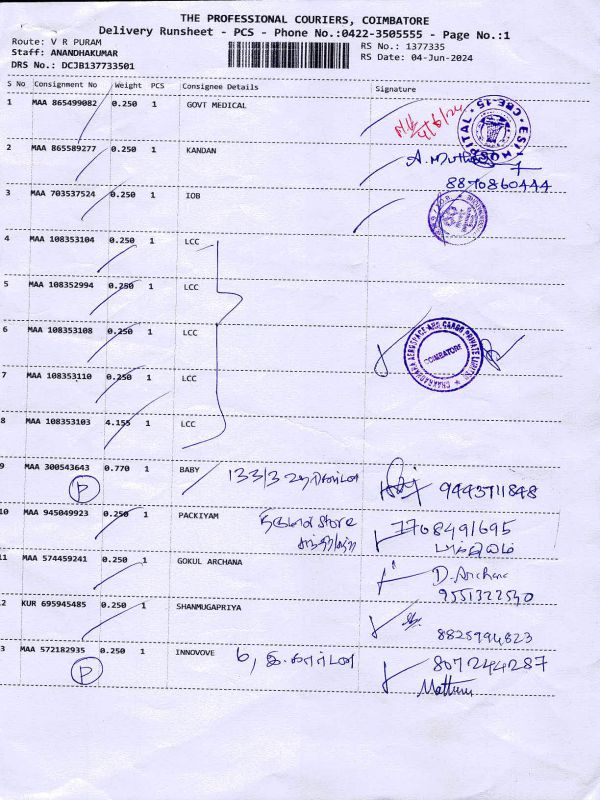 THE PROFESSIONAL COURIERS, COIMBATORE
Delivery Runsheet - PCS - Phone No.:0422-3505555 - Page No.:1
Route: V R PURAM
Staff: ANANDHAKUMAR
DRS No.: DCJB137733501
RS No.: 1377335
RS Date: 04-Jun-2024
S No Consignment No Weight PCS Consignee Details Signature
1 MAA 865499082 0.250 1 GOVT MEDICAL
4/6/24
ESI HOSPITAL CBE-15
2 MAA 865589277 0.250 1 KANDAN
8870860444
3 MAA 703537524 0.250 1 IOB
4 MAA 108353104 0.250 1 LCC
5 MAA 108352994 0.250 1 LCC
6 MAA 108353108 0.250 1 LCC
COIMBATORE
7 MAA 108353110 0.250 1 LCC
8 MAA 108353103 4.155 1 LCC
9 MAA 300543643 0.770 1 BABY 133/3 9443711848
P
10 MAA 945049923 0.250 1 PACKIYAM Store 7708491695
11 MAA 574459241 0.250 1 GOKUL ARCHANA D. Archana
9551322540
2 KUR 695945485 0.250 1 SHANMUGAPRIYA
8825994823
3 MAA 572182935 0.250 1 INNOVOVE 6, 807244287
P